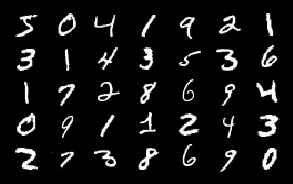 5 0 4 1 9 2 1
3 1 4 3 5 3 6
1 7 2 8 6 9 4
0 9 1 1 2 4 3
2 7 3 8 6 9 0